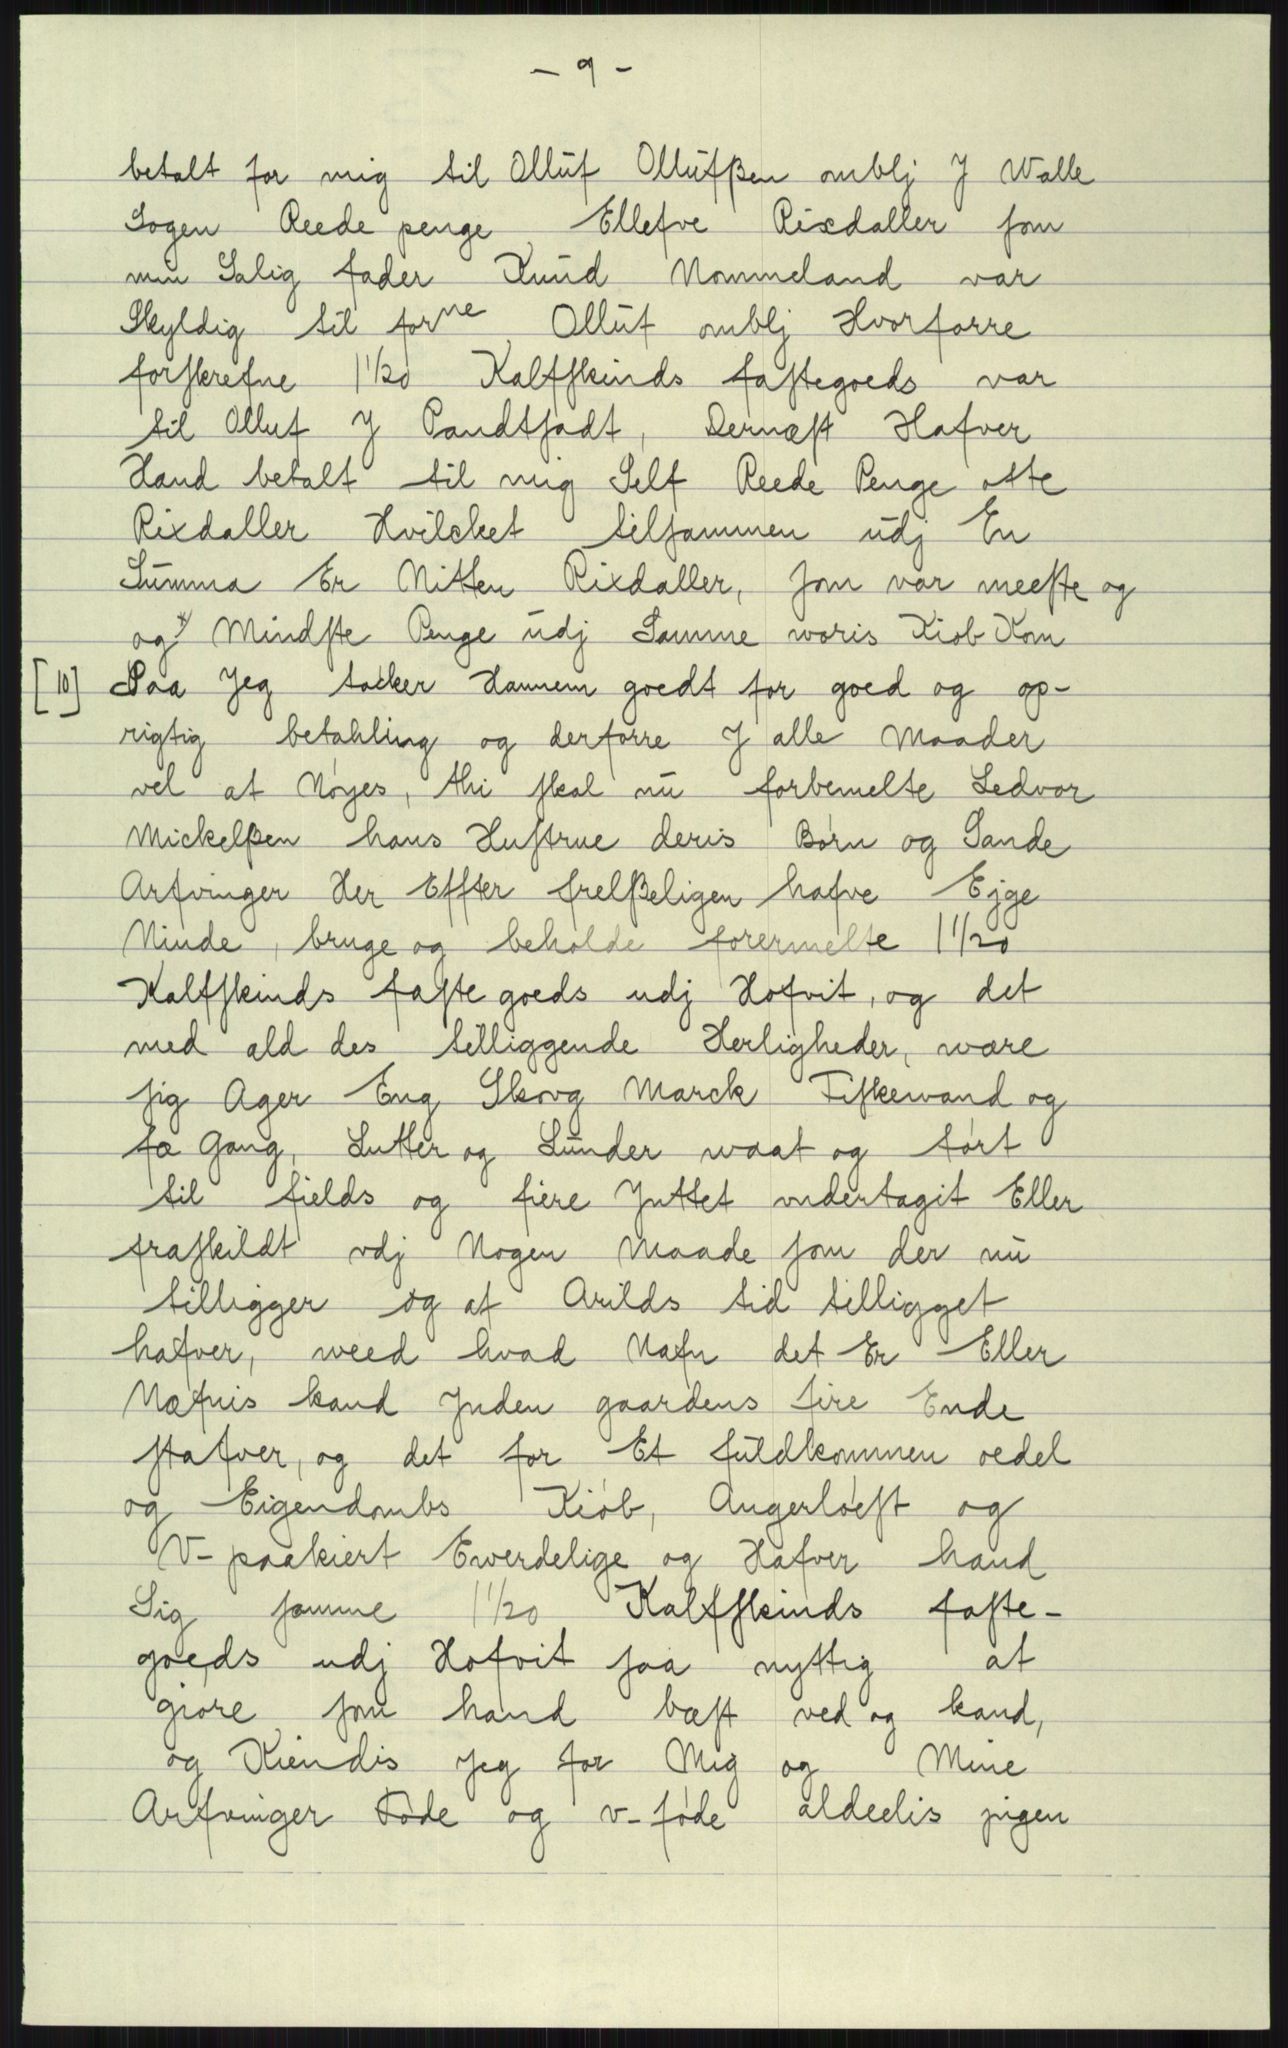 - 9 -
betalt for mig til Olluf Ollufßen omblj J Walle
Sogen Reede penge Ellefve Rixdaller som
min Salig fader Knud Nommeland var
Skyldig til forne Olluf omblj Hvorforre
forskrefne 1 1/20 Kalfskinds fastegoeds var
til Olluf J Pandtsadt, Dernæst Hafver
Hand betalt til mig Self Reede Penge otte
Rixdaller Hvilcket tilsammen udj En
Summa Er Nitten Rixdaller, som var meeste og
og* Mindste Penge udj Samme woris Kiøb Kom
[10] Saa Jeg tacker Hannem goedt for goed og op-
rigtig betahling og derforre J alle Maader
vel at Nøyes, thi skal nu forbemelte Sedvor
Mickelßen hans Hustrue deris Børn og Sande
Arfvinger Her Effter frelßeligen hafve Ejge
Ninde, bruge og beholde forermelte 1 1/20
Kalfskinds faste goeds udj Hofvit, og det
med ald des tilliggende Herligheder, wære
sig Ager Eng Skovg Marck Fiskewand og
fæ Gang, Lutter og Lunder waat og tørt
til fields og fiere Jnttet vndertagit Eller
fraskildt vdj Nogen Maade som der nu
tilligger og af Arilds tid tilligget
hafver, weed hvad Nafn det Er Eller
Næfnis kand Jnden gaardens fire Ende
stafver, og det for Et fuldkommen oedel
og Eigendombs Kiøb, Angerløest og
V-paakiert Ewerdelige og Hafver hand
Sig samme 1 1/20 Kalfskinds faste-
goeds udj Hofvit saa nyttig at
giøre som hand bæst ved og kand,
og Kiendis Jeg for Mig og Mine
ArfvingerFøde og v-føde aldeelis jngen